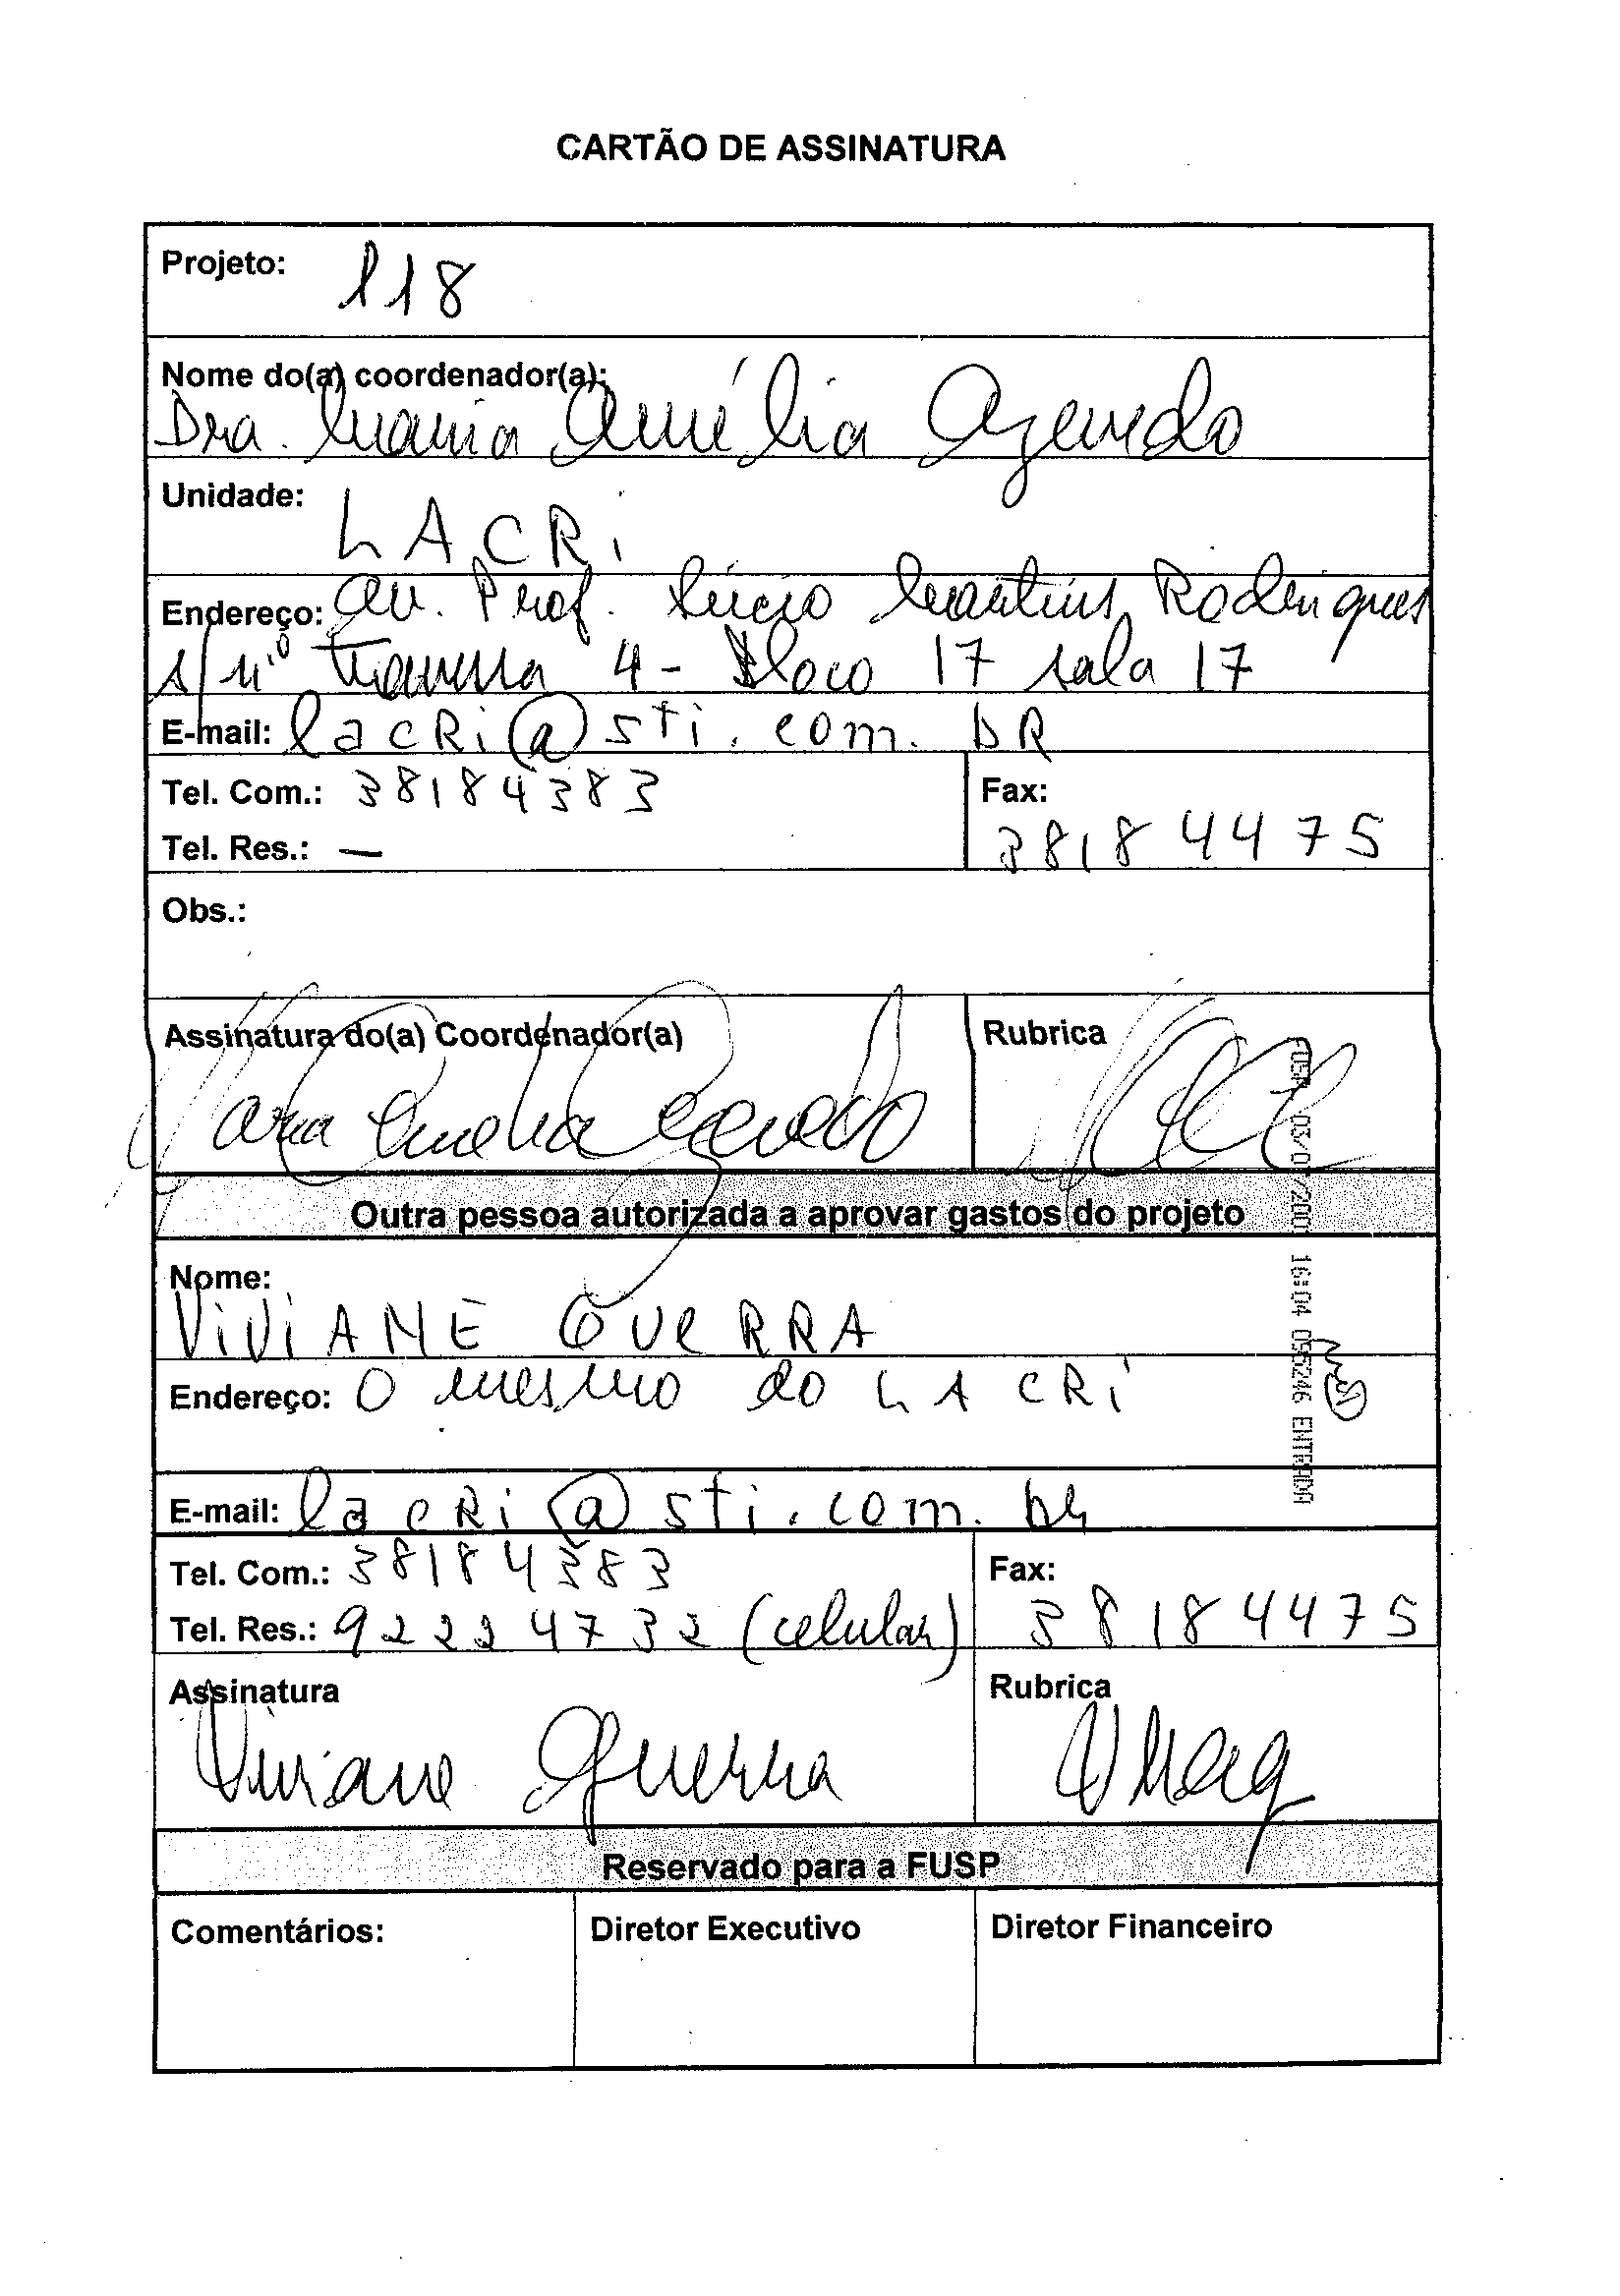 CARTÃO DE ASSINATURA
Projeto: 118
Nome do(a) coordenador(a):
Dra. Maria Amélia Azevedo
Unidade: LACRI
Endereço: Av. Prof. Lúcio Martins Rodrigues
s/nº Travessa 4 - Bloco 17 sala 17
E-mail: lacri@sti.com.bR
Tel. Com.: 38184383
Fax:
Tel. Res.: —
38184475
Obs.:
Assinatura do(a) Coordenador(a) Rubrica
Maria Amelia Azevedo
Outra pessoa autorizada a aprovar gastos do projeto
Nome:
ViViANE GUERRA
Endereço: O mesmo do LACRi
E-mail: lacri@sti.com.br
Tel. Com.: 38184383
Fax:
Tel. Res.: 92224732 (celular)
38184475
Assinatura Rubrica
Viviane Guerra
Reservado para a FUSP
Comentários: Diretor Executivo Diretor Financeiro
16:04 055246 ENTRADA